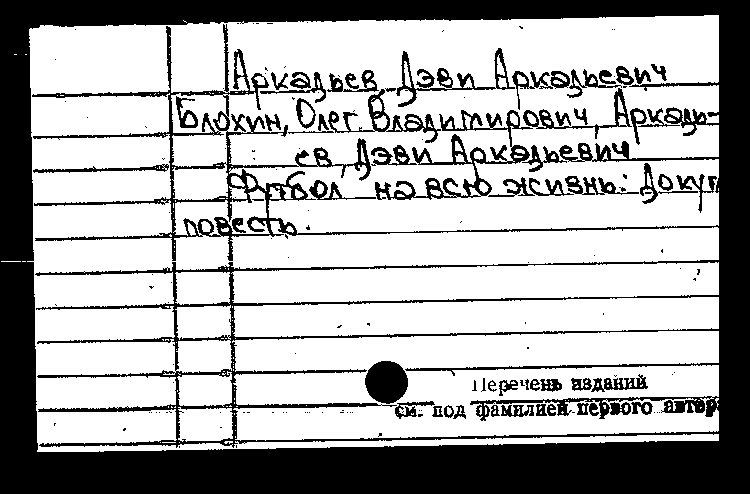 Аркадьев, Дэви Аркадьевич
Блохин, Олег Владимирович, Аркадь-
ев, Дэви Аркадьевич
Футбол на всю жизнь: Докум
повесть.
Перечень изданий
см. под фамилией первого автора